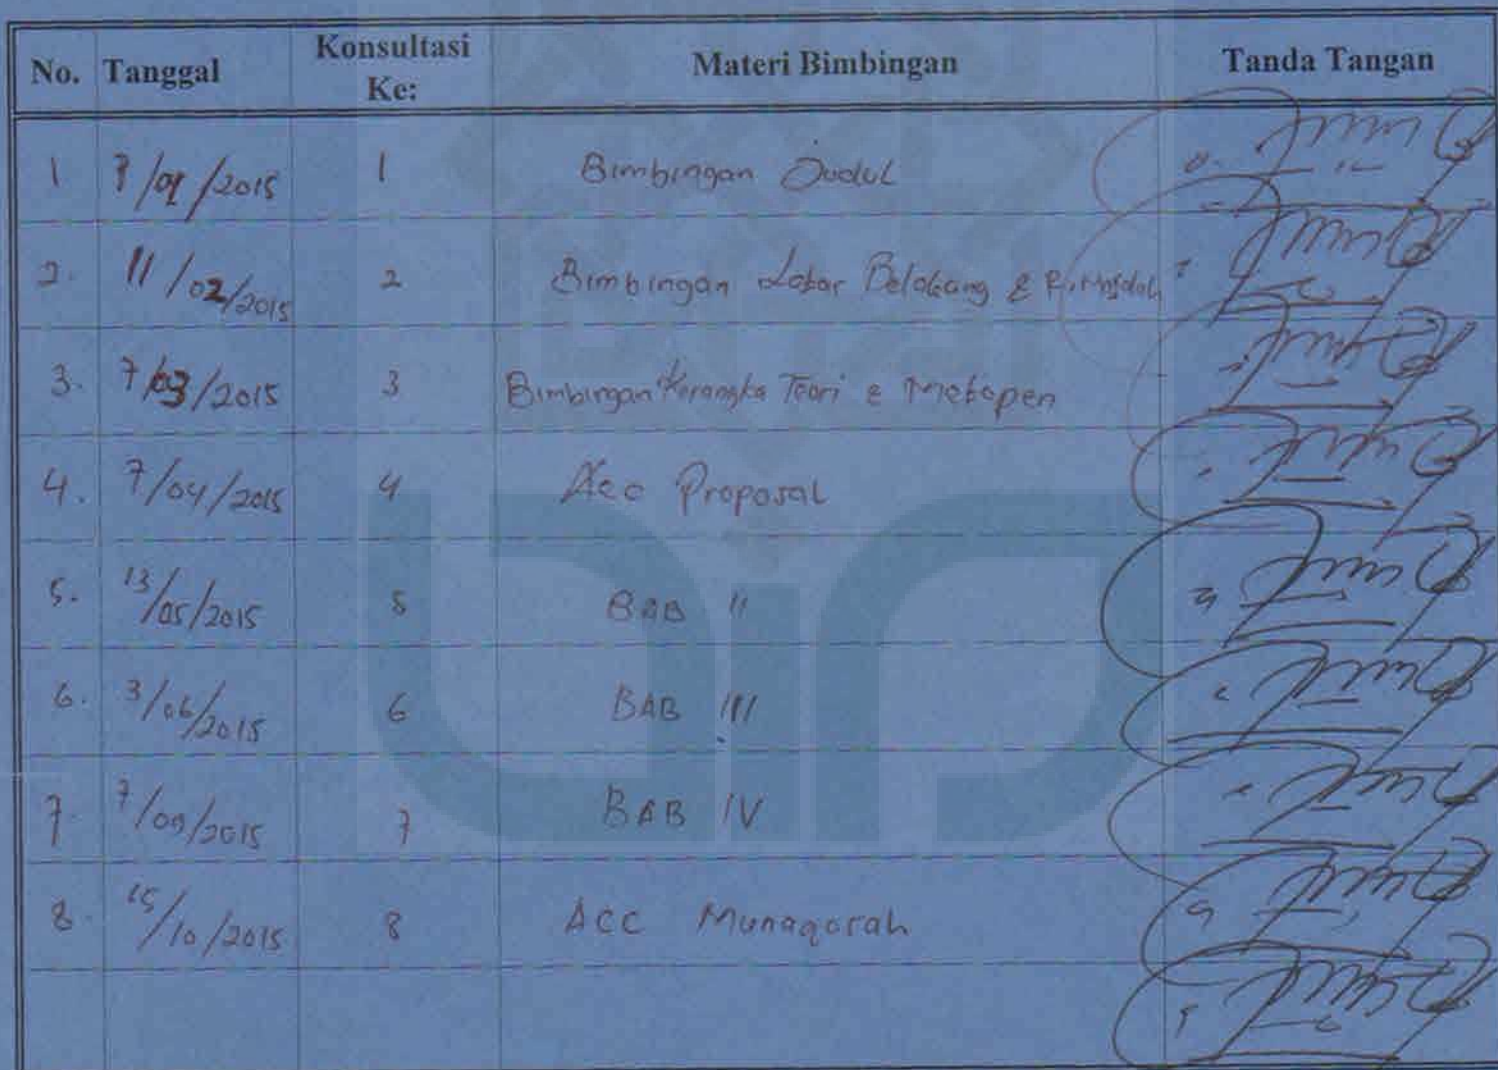 No. Tanggal Konsultasi Ke: Materi Bimbingan Tanda Tangan
1 /2015 1 Bimbingan Judul
2. 11/02/2015 2 Bimbingan Latar Belakang &
3. 7/03/2015 3 Bimbingan Kerangka Teori & Metopen
4. 7/04/2015 4 Acc Proposal
5. 13/05/2015 5 BAB II
6. 3/06/2015 6 BAB III
7. 7/09/2015 7 BAB IV
8. 15/10/2015 8 Acc Munaqosah